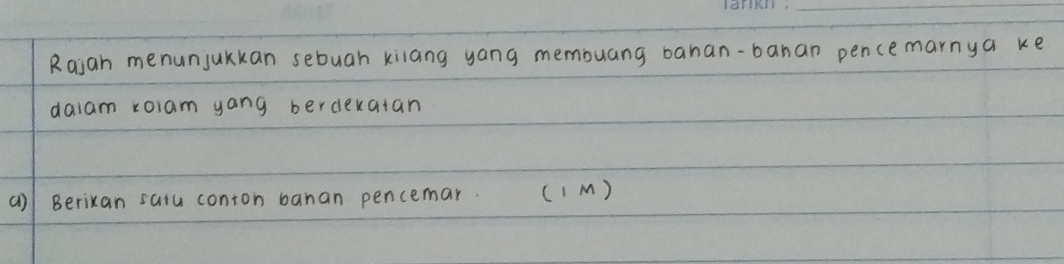 Tarikh :
Rajah menunjukkan sebuah kilang yang membuang bahan-bahan pencemarnya ke
dalam kolam yang berdekatan
a) Berikan satu contoh bahan pencemar. (1 M)